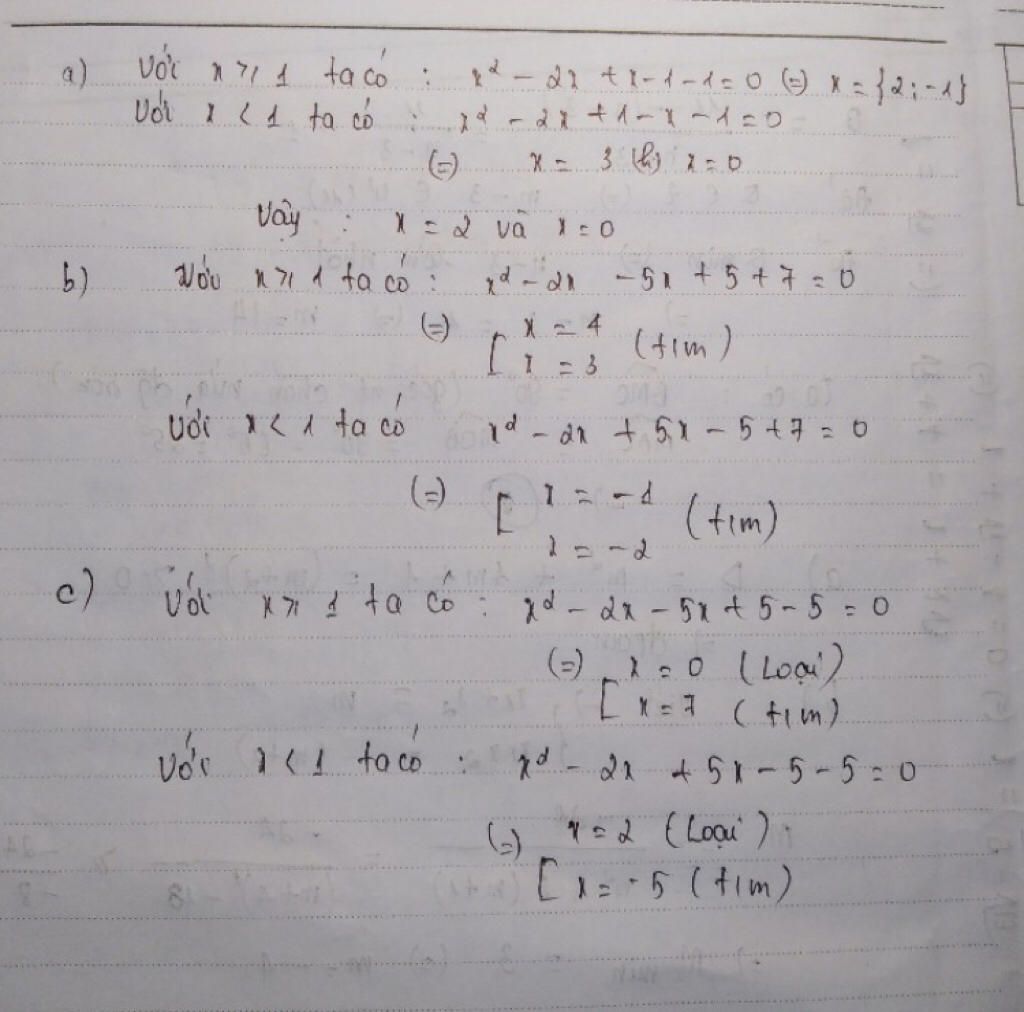 a) Với x ≥ 1 ta có : x² - 2x + x - 1 - 1 = 0 (=) x = {2; -1}
Với x < 1 ta có : x² - 2x + 1 - x - 1 = 0
(=) x = 3 (h) x = 0
Vậy : x = 2 và x = 0
b) Với x ≥ 1 ta có : x² - 2x - 5x + 5 + 7 = 0
(=) [ x = 4
x = 3 (t/m)
Với x < 1 ta có x² - 2x + 5x - 5 + 7 = 0
(=) [ x = -1
x = -2 (t/m)
c) Với x ≥ 1 ta có : x² - 2x - 5x + 5 - 5 = 0
(=) [ x = 0 (Loại)
x = 7 (t/m)
Với x < 1 ta có : x² - 2x + 5x - 5 - 5 = 0
(=) [ x = 2 (Loại)
x = -5 (t/m)